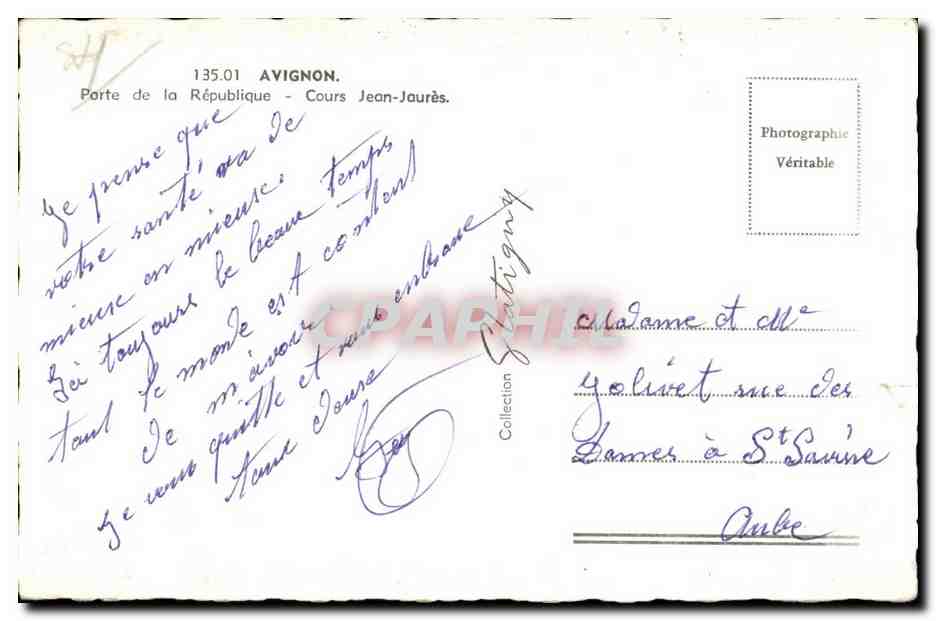 135.01 AVIGNON.
Porte de la République - Cours Jean-Jaurès.
Je pense que
votre santé va de
mieux en mieux.
Ici toujours le beau temps
tout le monde est content
de m'avoir
Je vous quitte et vous embrasse
tous deux
Photographie
Véritable
Collection Flatigny
CPAPHIL
Madame et Mr
Jolivet rue des
Dames à St Savine
Aube